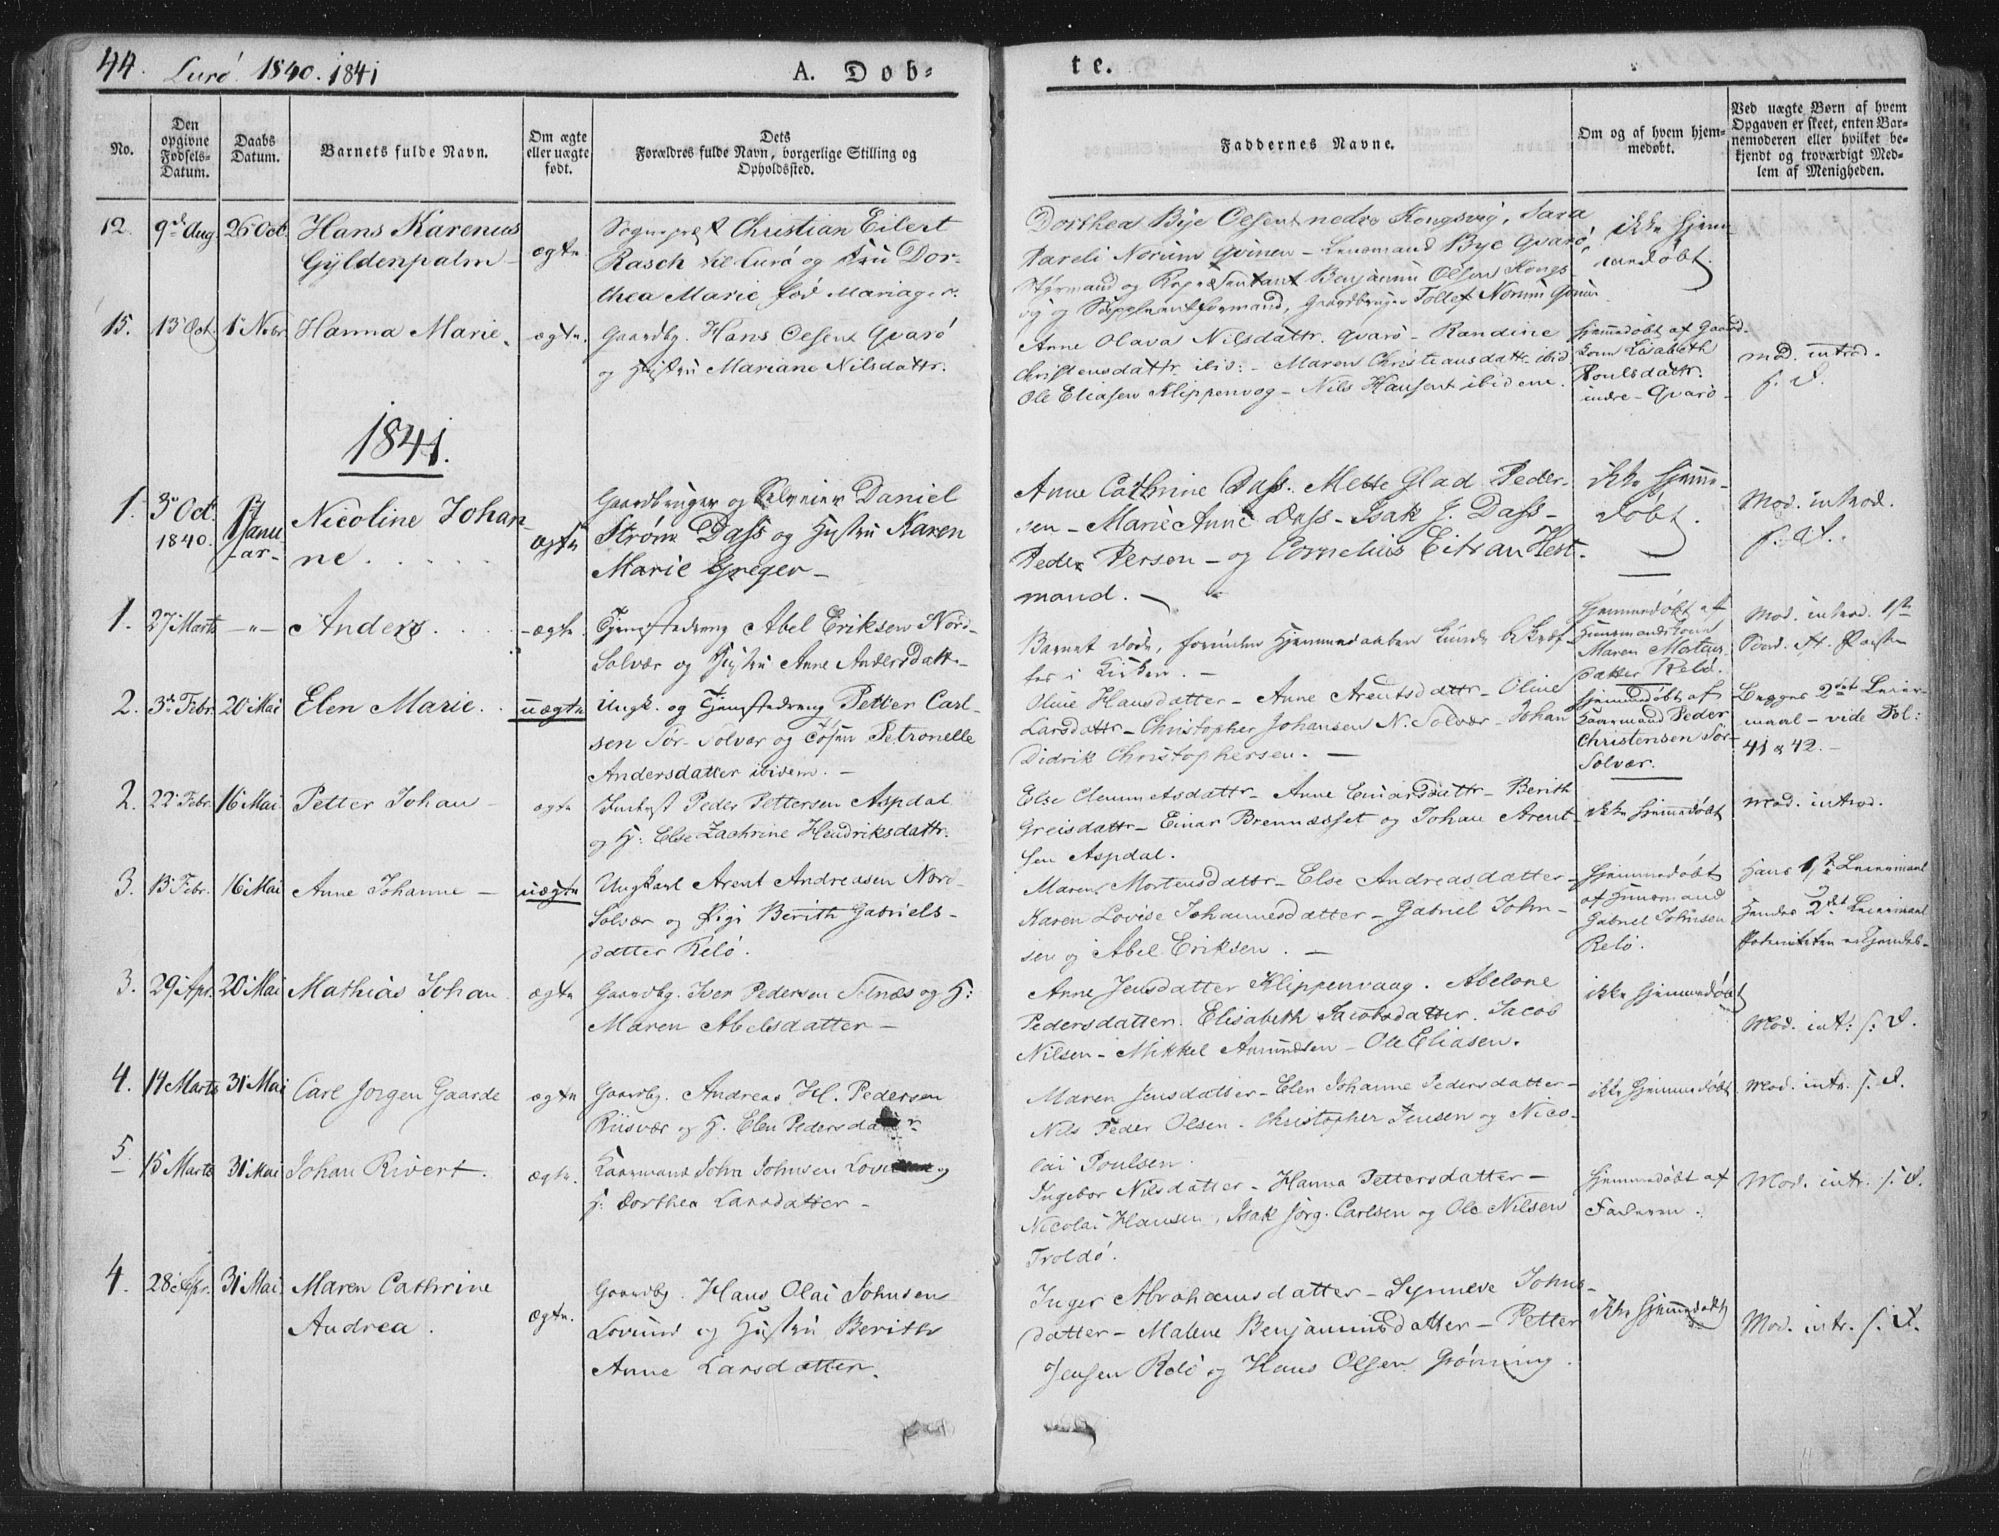 44. Lurö 1840. 1841
A. Dob-
te.
No.
Den opgivne Fødsels-Datum.
Daabs Datum.
Barnets fulde Navn.
Om ægte eller uægte født.
Dets Forældres fulde Navn, borgerlige Stilling og Opholdssted.
Faddernes Navne.
Om og af hvem hjemmedøbt.
Ved uægte Børn af hvem Opgaven er skeet, enten Barnemoderen eller hvilket bekjendt og troværdigt Medlem af Menigheden.
12. 9de Aug. 26 Oct. Hans Karenus
Gyldenpalm
ægte
Sognepræst Christian Eilert
Rasch til Lurö og Fru Dor-
thea Marie fød Mariager.
Dorthea Bye Olsen nedre Kongsvig, Sara
Pareli Norum Qvinen - Lensmand Bye Qvarö
Styrmand og Repræsentant Benjamin Olsen Kongs-
vig og Gaardbruger Tollef Norum
ikke hjem-
medöbt.
15. 13 Oct. 1 Nvbr. Hanna Marie
ægte.
Gaardbg. Hans Olsen Qvarö
og Hustru Mariane Nilsdattr.
Anne Olava Nilsdattr. Qvarö - Randine
Christensdattr ibid: - Maren Christiansdattr ibid
Ole Eliasen Klippenvog - Nils Hansen ibidem.
hjemmedöbt af Gaard-
kone Lisabeth
Poulsdattr.
indre - Qvarö
Mod. introd.
s. D.
1841.
1. 3 Oct. 1840. 17 Janu-
ar
Nicoline Johan-
ne.
ægte
Gaardbruger og Selveier Daniel
Ström Dass og Hustru Karen
Marie Greger -
Anne Cathrine Dass. Mette Glad Peder-
sen - Marie Anne Dass - Isak J. Dass -
Peder Persen - og Cornelius Eitran Hest-
mand. -
ikke hjemme-
döbt.
Mod. introd.
s. D.
1. 27 Marts - " - Anders.
ægte.
Tjenestedreng Abel Eriksen Nord-
Solvær og Hustru Anne Andersdatt.
Barnet döde, forinden Hjemmedaaben kunde bekræf-
tes i Kirken. -
Hjemmedöbt af
Huusmandskone
Maren Mortens-
datter Relö.
Mod. introd. 1ste
2. 3 Febr. 20 Mai Elen Marie.
uægte
Ungk. og Tjenestedreng Petter Carl-
sen Sör-Solvær og Petronelle
Andersdatter ibidem. -
Oline Hansdatter - Anne Arentsdattr - Oline
Larsdattr - Christopher Johansen N. Solvær - Johan
Didrik Christophersen. -
hjemmedöbt af
Kaarmand Peder
Christensen Sör-
Solvær.
Begges 2det Leier-
maal - vide Fol:
41 & 42. -
2. 22 Febr. 16 Mai Petter Johan -
ægte
Inderst Peder Pettersen Aspdal
og H: Else Zachrine Hendriksdattr.
Else Clemmetsdattr - Anne Einarsdattr - Berith
Greisdattr - Einar Brennæsset og Johan Arent-
sen Aspdal.
ikke hjemmedöbt
Mod. introd.
3. 13 Febr. 16 Mai Anne Johanne -
uægte
Ungkarl Arent Andreasen Nord-
Solvær og Pige Berith Gabriels-
datter Relö.
Maren Mortensdattr - Else Andreasdatter -
Karen Lovise Johannesdatter - Gabriel John-
sen og Abel Eriksen. -
Hjemmedöbt
af Huusmand
Gabriel Johnsen
Relö.
Hans 1ste Leiermaal
Hendes 2det Leiermaal
3. 29 Apr. 20 Mai Mathias Johan
ægte
Gaardbg. Iver Pedersen Selnæs og H:
Maren Abelsdatter -
Anne Jensdatter Klippenvaag. Abelone
Pedersdatter. Elisabeth Jacobsdatter. Jacob
Nilsen - Mikkel Amundsen - Ole Eliasen.
ikke hjemmedöbt
Mod. intr: s. D.
4. 14 Marts 31 Mai Carl Jörgen Gaarde
ægte
Gaardbg. Andreas H. Pedersen
Riisvær og H. Elen Pedersdatter.
Maren Jensdatter - Elen Johanne Pedersdatter -
Nils Peder Olsen. Christopher Jensen og Nico-
lai Poulsen.
ikke hjemmedöbt
Mod. intr. s. D.
5. 15 Marts 31 Mai Johan Rivert.
ægte.
Kaarmand John Johnsen og
H: Dorthea Larsdatter -
Ingebor Nilsdatter - Hanna Pettersdatter -
Nicolai Hansen, Isak Jörg. Carlsen og Ole Nilsen
Troldö.
hjemmedöbt af
Faderen.
Mod. intr. s. D.
4. 28 Apr. 31 Mai Maren Cathrine
Andrea.
ægte.
Gaardbg. Hans Olai Johnsen
Lovund og Hustru Berith
Anne Larsdatter.
Inger Abrahamsdatter - Synneve Johns-
datter - Malene Benjaminsdatter - Petter
Jensen Relö og Hans Olsen Grönning.
ikke hjemmedöbt
Mod. intr. s. D.